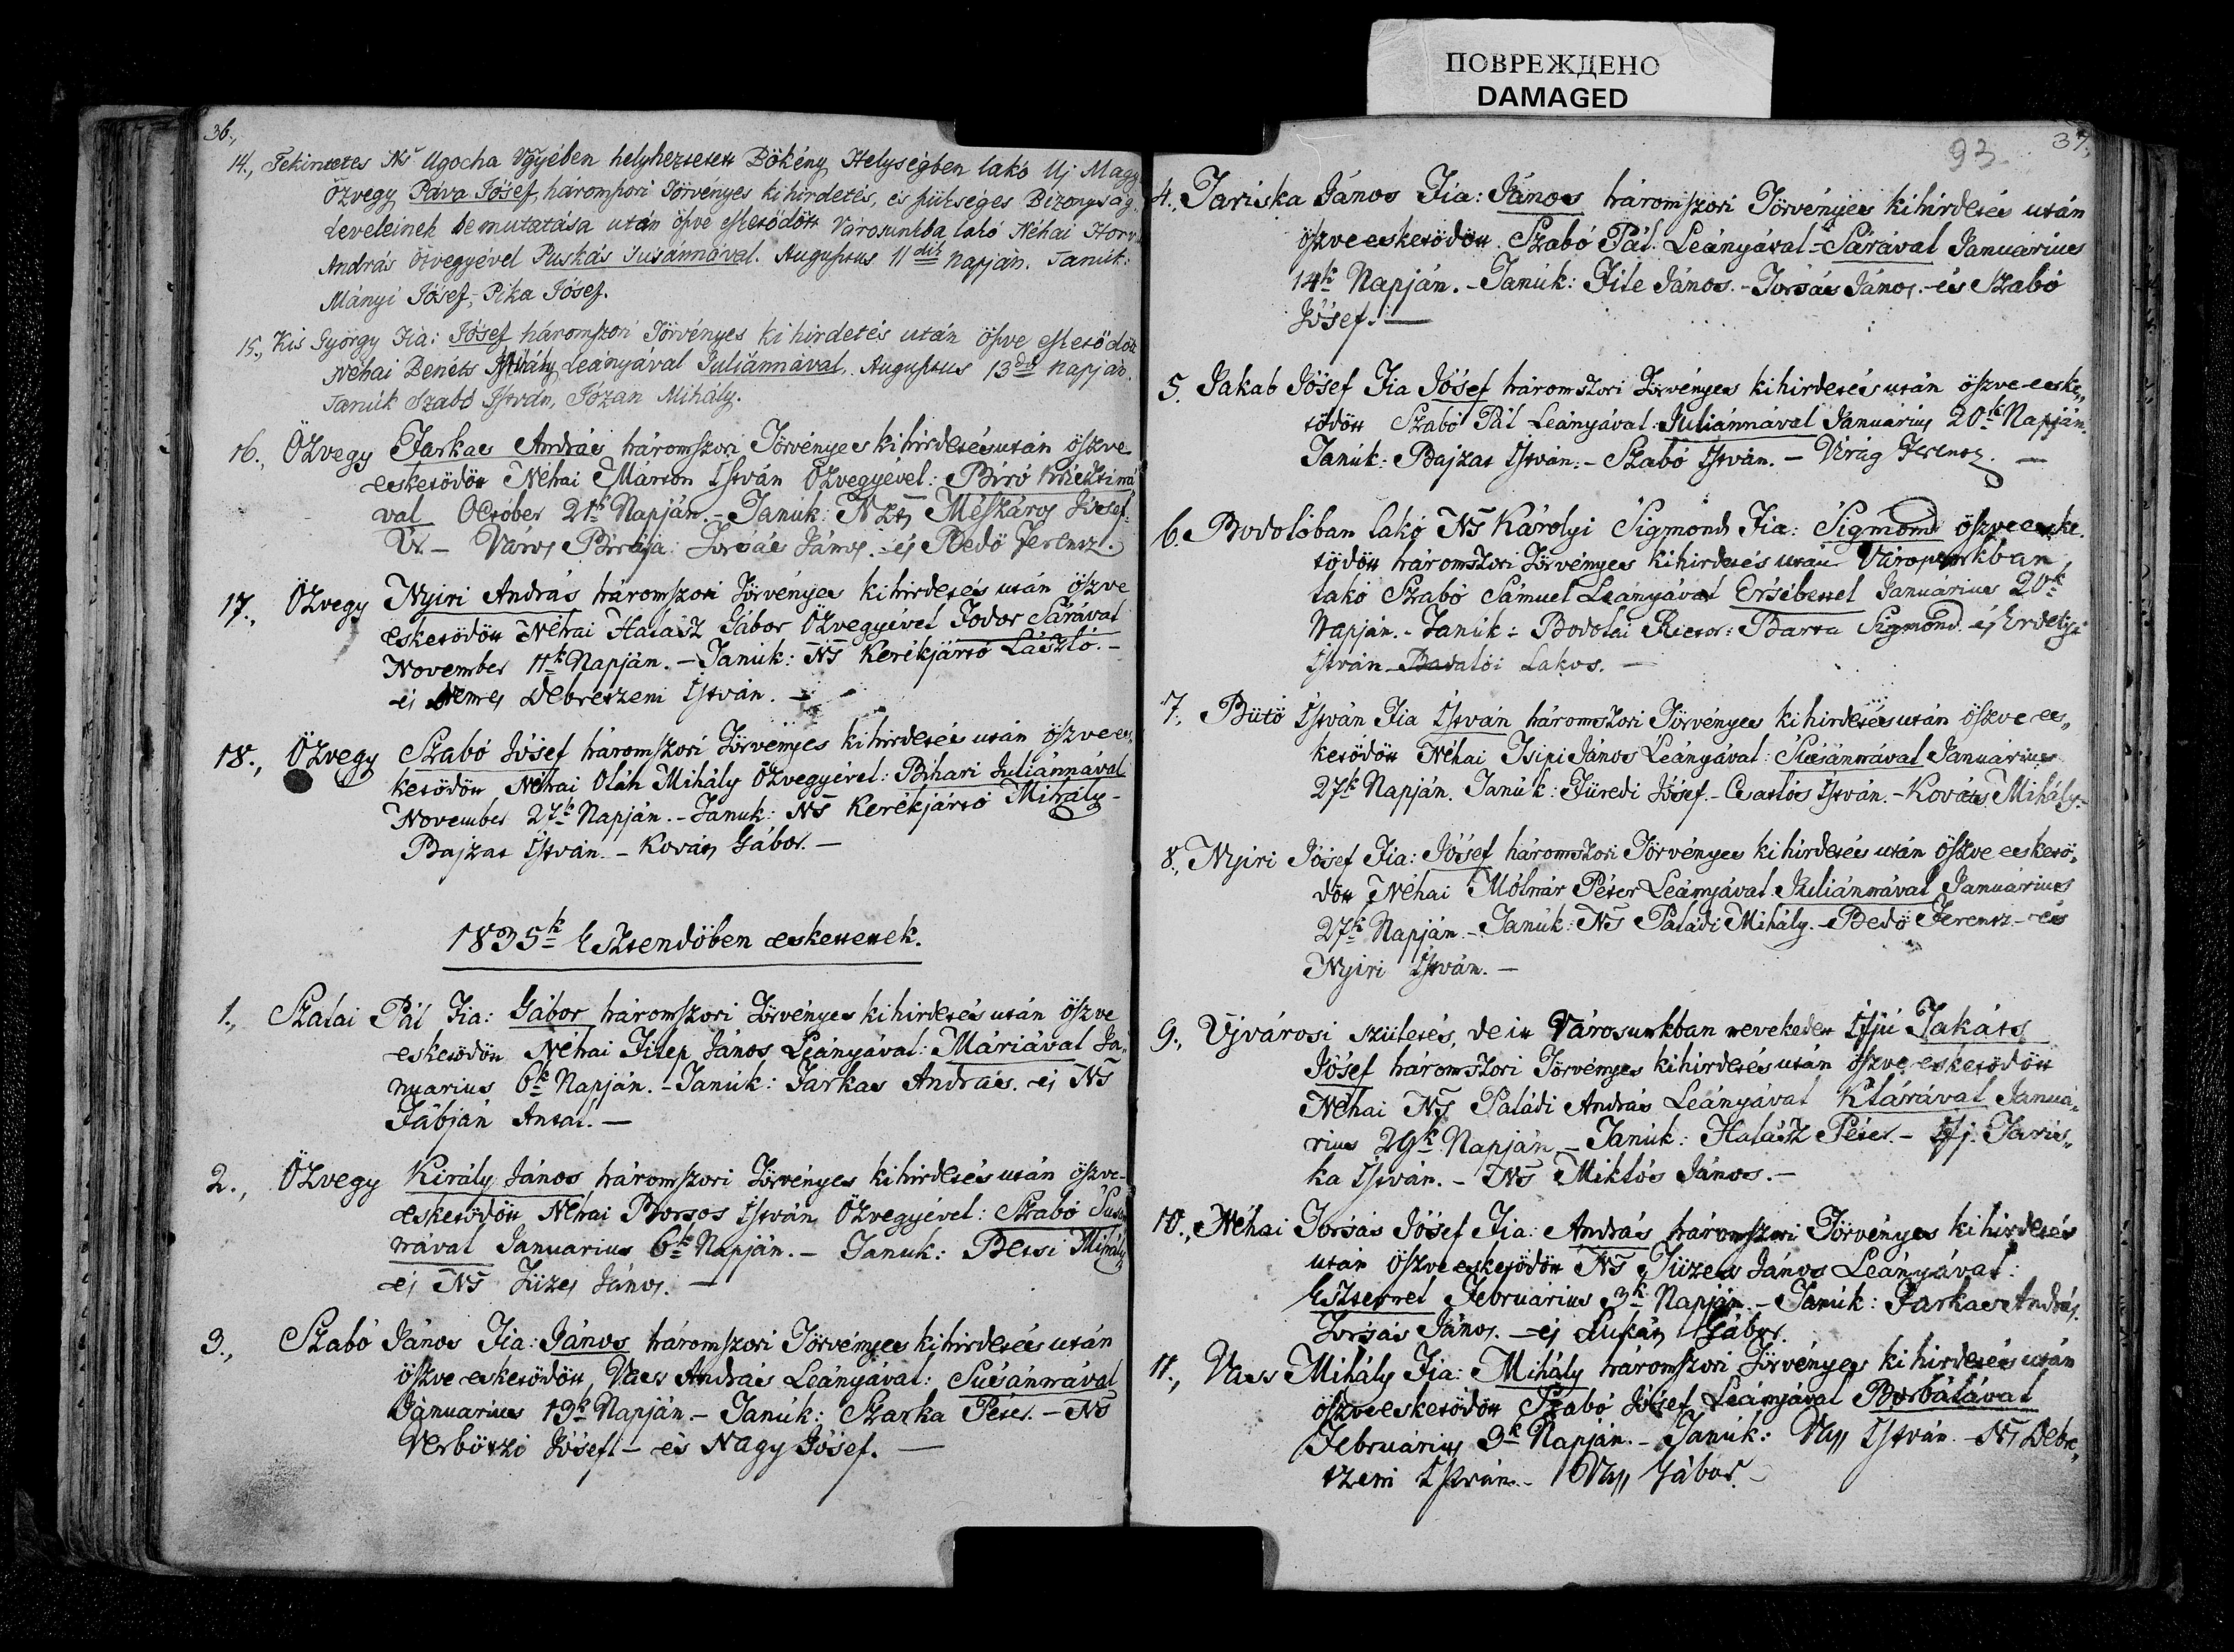 ПОВРЕЖДЕНО
DAMAGED
36.,
14., Tekintetes Ns Ugocha Vgyében helyheztetett Bökény Helységben lakó Uj Magy
Özvegy Páva Jósef, háromszori Törvényes kihirdetés, és szükséges Bizonyság
leveleinek bemutatása után öszve esketödött Városunkba lakó Néhai Horv
András özvegyével Puskás Susánnával. Augustus 11dik napján. Tanúk:
Mányi Jósef, Pika Jósef.
15., Kis György Fia: Jósef háromszori Törvényes kihirdetés után öszve esketödött
Néhai Benéts Mihály Leányával Juliánnával, Augustus 13dik napján.
Tanúk Szabó István, Józan Mihály.
16., Özvegy Farkas András háromszori Törvényes kihirdetés után öszve
esketödött Néhai Márton István Özvegyével: Biró Kristiná
val October 21k Napján. - Tanúk: Nzts Mészáros Jósef
Ur - Város Birája: Forsás János. és Bedö Ferentz.
17., Özvegy Nyiri András háromszori Törvényes kihirdetés után öszve
esketödött Néhai Halász Gábor Özvegyével Fodor Sárával
November 11k Napján. - Tanúk: Ns Kerékjártó László. -
és Nemes Debretzeni István. -
18., Özvegy Szabó Jósef háromszori Törvényes kihirdetés után öszve es
ketödött Néhai Oláh Mihály Özvegyével: Bihari Juliánnával
November 27k Napján. - Tanuk: Ns Kerékjártó Mihály -
Bajzat István. - Kováts Gábor. -
1835k Esztendöben eskettettek.
1., Szalai Pál Fia: Gábor háromszori Törvényes kihirdetés után öszve
esketödött Néhai Filep János Leányával: Máriával Ja„
nuarius 6k Napján. - Tanúk: Farkas András. és Ns
Fábján Antal. -
2., Özvegy Király János háromszori Törvényes kihirdetés után öszve-
esketödött Néhai Borsos István Özvegyével: Szabó Susá
nnával Januarius 6k Napján. - Tanuk: Betsi Mihály
és Ns Füzes János. -
3., Szabó János Fia: János háromszori Törvényes kihirdetés után
öszve esketödött, Vass András Leányával: Susánnával
Januarius 13k Napján. - Tanúk: Szarka Péter. - Ns
Verbötzi Jósef. - és Nagy Jósef. -
93
37.,
4., Tariska János Fia: János háromszori Törvényes kihirdetés után
öszve esketödött Szabó Pál: Leányával - Sárával Januárius
14k Napján. - Tanúk: File János. - Forsás János. - és Szabó
Jósef. -
5. Jakab Jósef Fia Jósef háromszori Törvényes kihirdetés után öszve eske„
tödött Szabó Pál Leányával: Juliánnával Januárius 20k Napján.
Tanúk: Bajzat István. - Szabó István. - Virág Ferentz. -
6. Bodolóban lakó Ns Károlyi Sigmond Fia: Sigmond öszve eske.
tödött háromszori Törvényes kihirdetés után Városunkban
lakó Szabó Sámuel Leányával Ersébettel Januárius 20k
Napján. - Tanúk: Bodolai Rector: Barta Sigmond. és Erdelyi
István Badalói Lakos. -
7., Bütö István Fia István háromszori Törvényes kihirdetés után öszve es„
ketödött Néhai Tsipi János Leányával: Susánnával Januárius
27k Napján. Tanúk: Füredi Jósef. - Csatlós István. - Kováts Mihály. -
8., Nyiri Jósef Fia: Jósef háromszori Törvényes kihirdetés után öszve esketö„
dött Néhai Mólnár Péter Leányával Juliánnával Januárius
27k Napján. - Tanúk: Ns Paládi Mihály. - Bedö Ferentz - és
Nyiri István. -
9., Ujvárosi születés, de itt Városunkban nevekedett Ifjú Takáts
Jósef háromszori Törvényes kihirdetés után öszve esketödött
Néhai Ns Paládi András Leányával Klárával Januá„
rius 29k Napján - Tanúk: Halász Péter - Ifj. Taris„
ka István. - Ns Miklós János. -
10., Néhai Forsás Jósef Fia: András háromszori Törvényes kihirdetés
után öszve esketödött Ns Füzes János Leányával:
Eszterrel Februárius 3k Napján. - Tanúk: Farkas András.
Forsás János. - és Lukáts Gábor.
11., Vass Mihály Fia: Mihály háromszori Törvényes kihirdetés után
öszve esketödött Szabó Jósef Leányával Borbálával
Februárius 3k Napján. - Tanúk: Vass István - Ns Debre„
tzeni István. - Vass Gábor. -